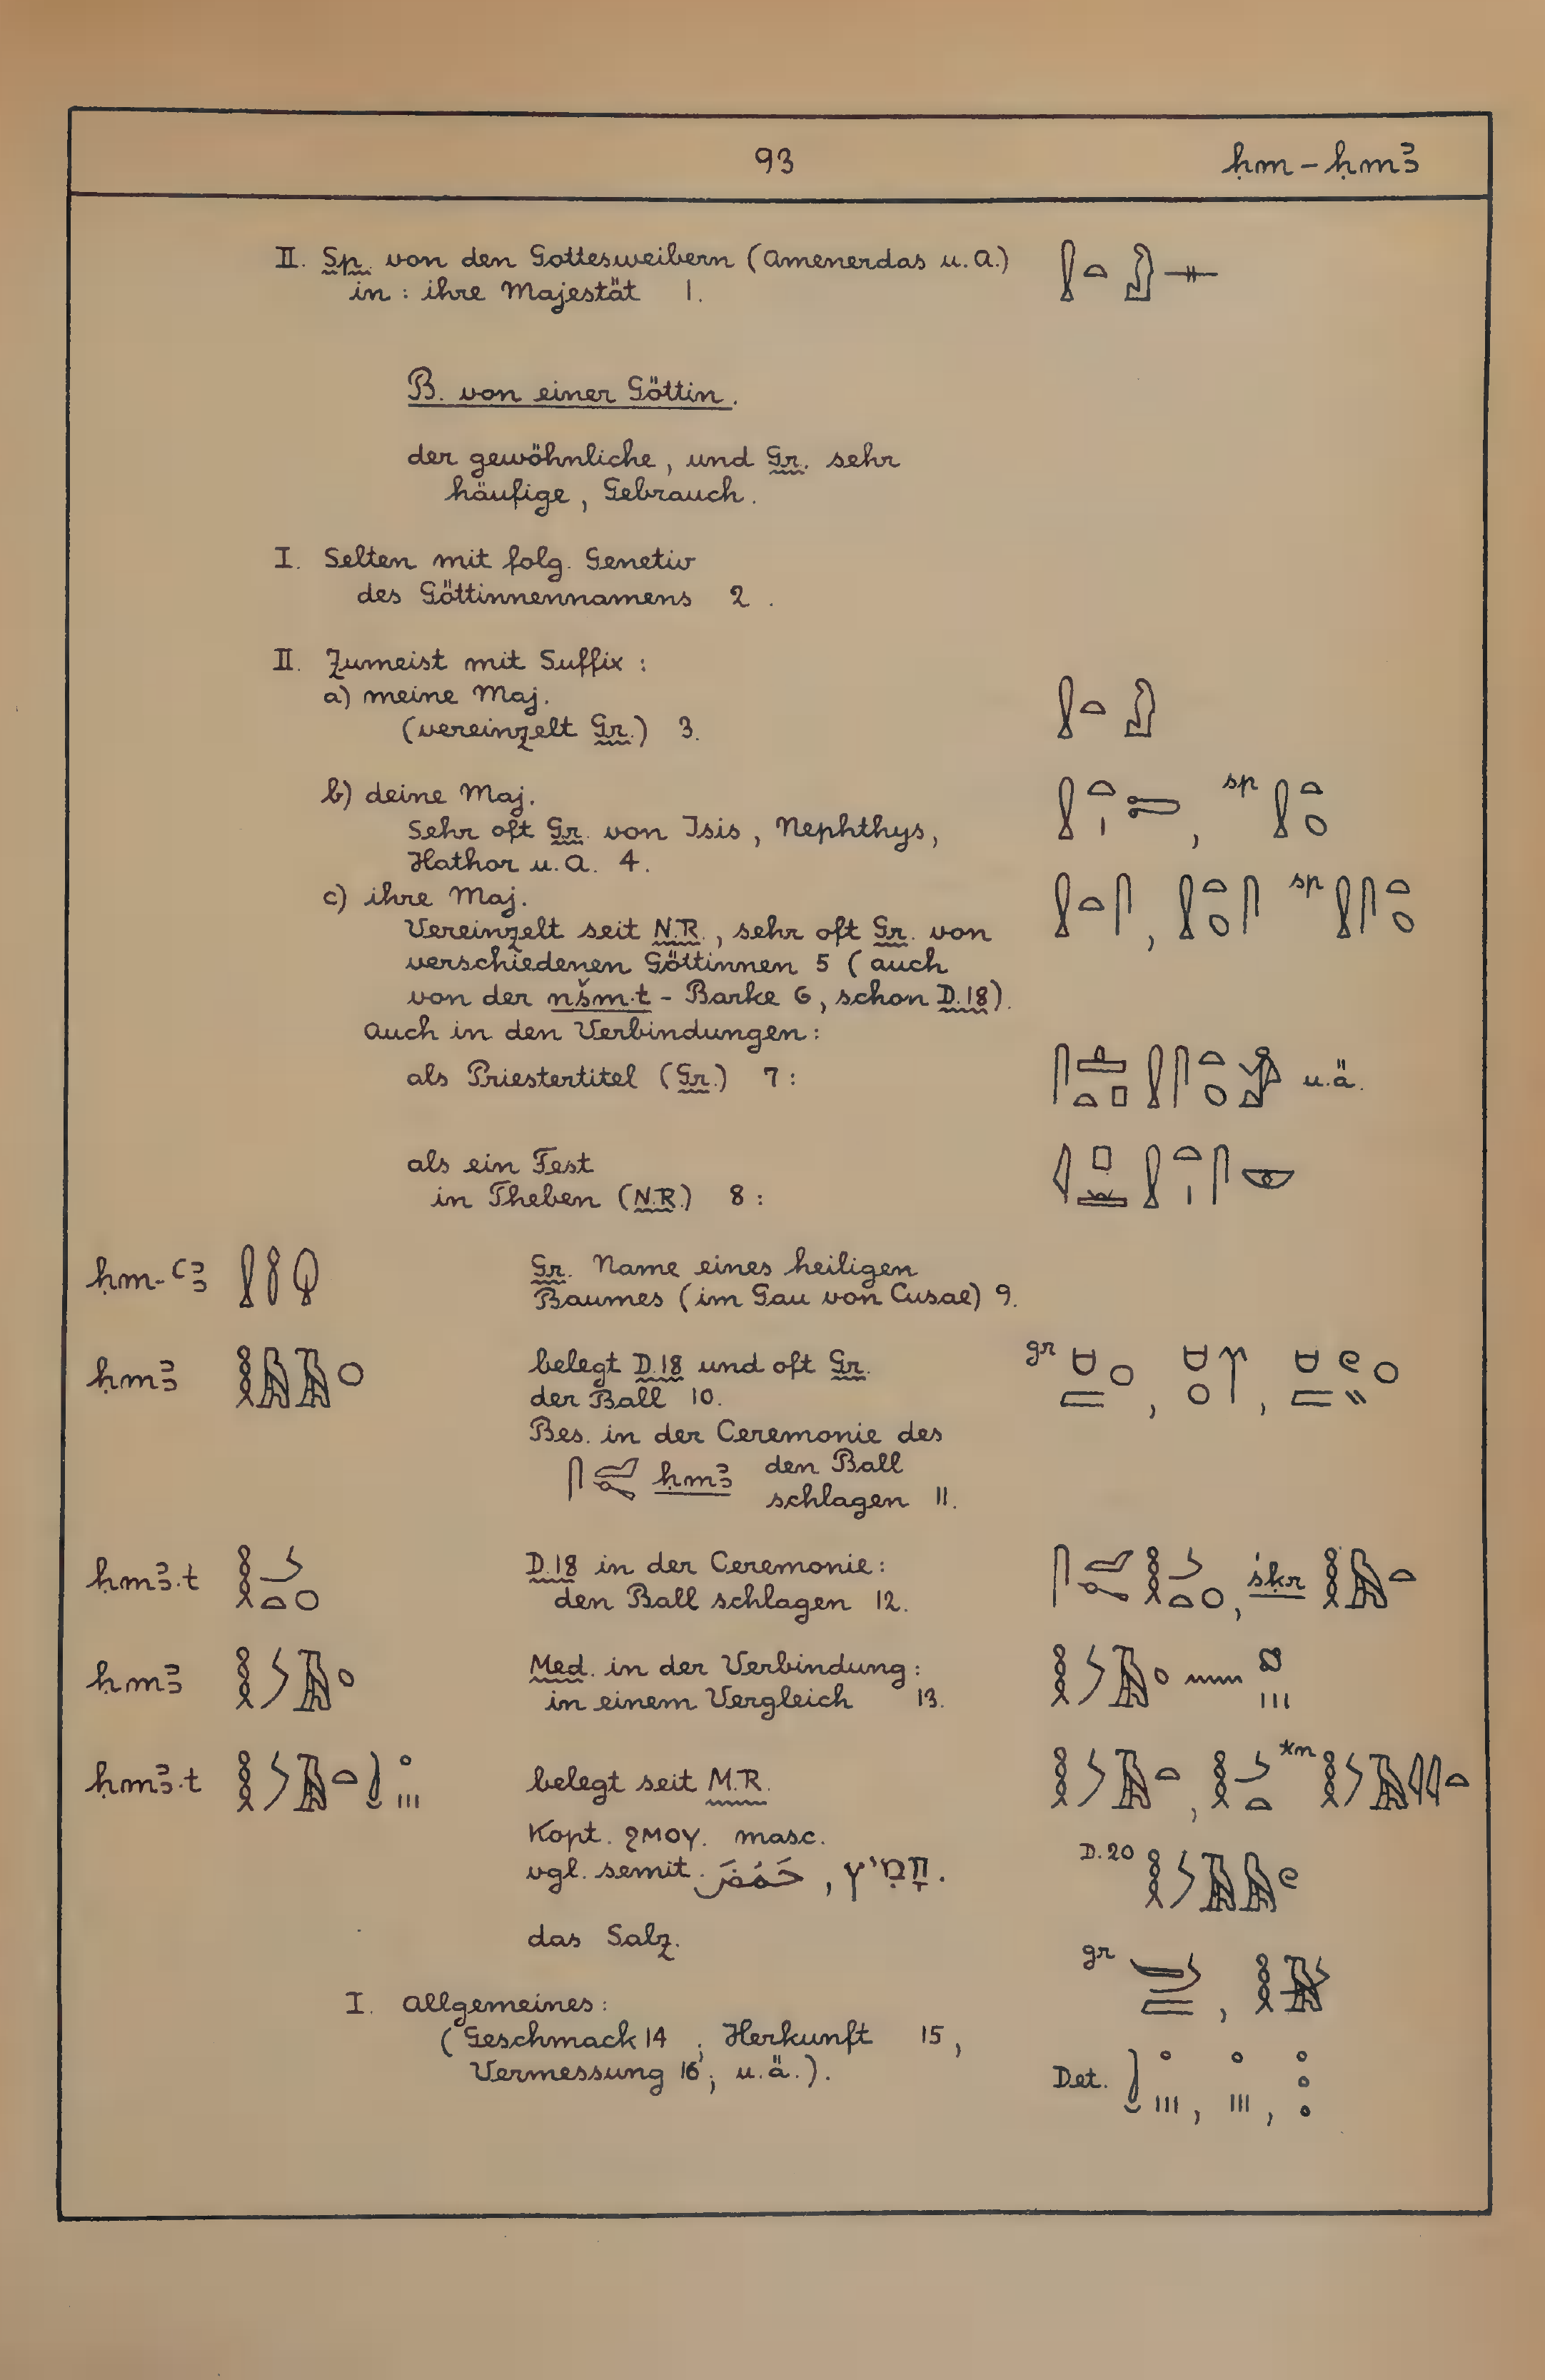 93 ḥm – ḥmꜣ
II. Sp. von den Gottesweibern (Amenerdas u. A.)
in : ihre Majestät 1.
B. von einer Göttin.
der gewöhnliche, und Gr. sehr
häufige, Gebrauch.
I. Selten mit folg. Genetiv
des Göttinnennamens 2 .
II. Zumeist mit Suffix :
a) meine Maj.
(vereinzelt Gr.) 3.
b) deine Maj. sp
Sehr oft Gr. von Isis, Nephthys,
Hathor u. A. 4.
c) ihre Maj. sp
Vereinzelt seit N.R., sehr oft Gr. von
verschiedenen Göttinnen 5 (auch
von der nšm.t - Barke 6, schon D.18).
Auch in den Verbindungen :
als Priestertitel (Gr.) 7 : u.ä.
als ein Fest
in Theben (N.R.) 8 :
ḥm-ꜥꜣ Gr. Name eines heiligen
Baumes (im Gau von Cusae) 9.
ḥmꜣ belegt D.18 und oft Gr. gr
der Ball 10.
Bes. in der Ceremonie des
ḥmꜣ den Ball
schlagen 11.
ḥmꜣ.t D.18 in der Ceremonie : śḳr
den Ball schlagen 12.
ḥmꜣ Med. in der Verbindung :
in einem Vergleich 13.
ḥmꜣ.t belegt seit M.R. *m
Kopt. ϩⲙⲟⲩ. masc. D.20
vgl. semit. حَمُضَ, חָמֵץ.
das Salz. gr
I. Allgemeines :
(Geschmack 14 ; Herkunft 15,
Vermessung 16 ; u.ä.). Det.